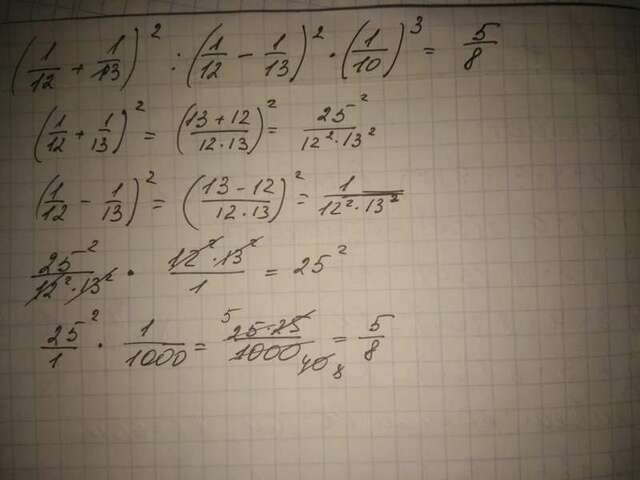 (1/12 + 1/13)² : (1/12 − 1/13)² · (1/10)³ = 5/8
(1/12 + 1/13)² = ((13 + 12)/(12 · 13))² = 25²/(12² · 13²)
(1/12 − 1/13)² = ((13 − 12)/(12 · 13))² = 1/(12² · 13²)
25²/(12² · 13²) · (12² · 13²)/1 = 25²
25²/1 · 1/1000 = 5 (25 · 25)/1000 40 8 = 5/8